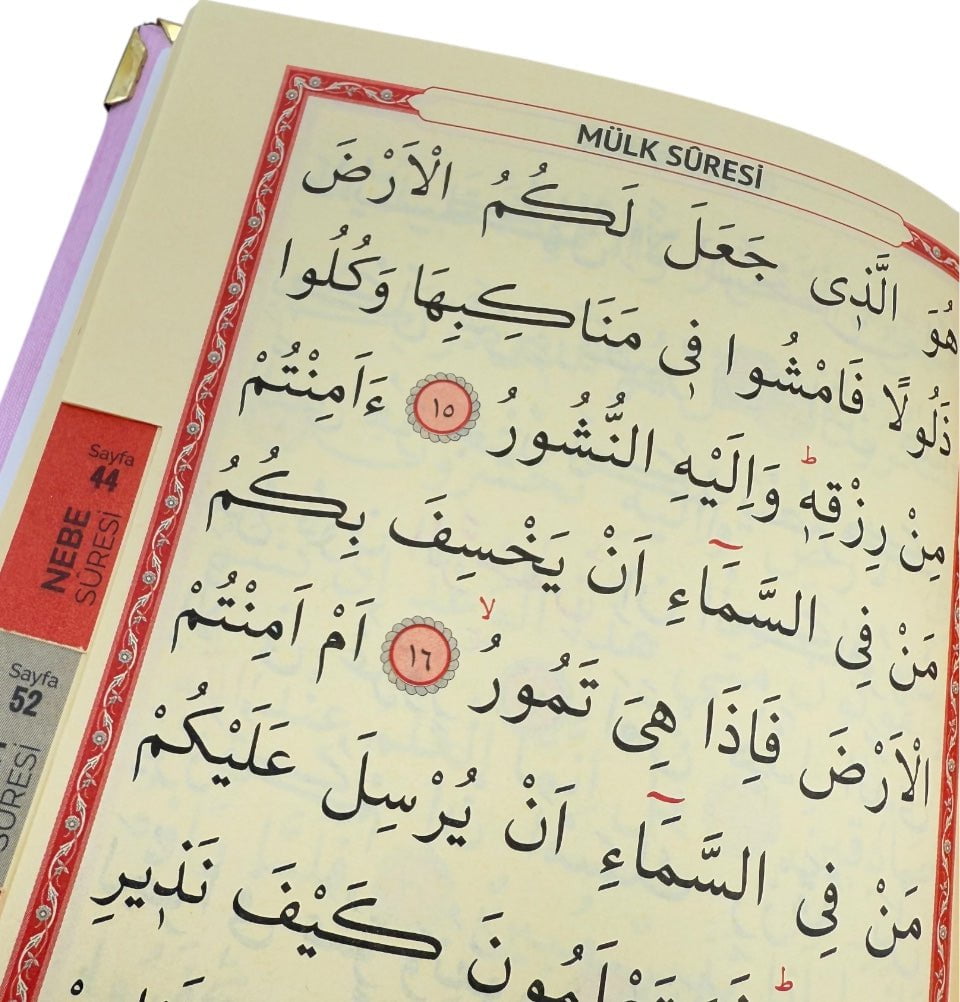 MÜLK SÛRESİ
هُوَ الَّذ۪ى جَعَلَ لَكُمُ الْاَرْضَ
ذَلُولًا فَامْشُوا ف۪ى مَنَاكِبِهَا وَكُلُوا
مِنْ رِزْقِه۪ ؕ وَاِلَيْهِ النُّشُورُ ١٥ ءَاَمِنْتُمْ
مَنْ فِى السَّمَٓاءِ اَنْ يَخْسِفَ بِكُمُ
الْاَرْضَ فَاِذَا هِىَ تَمُورُ ۙ ١٦ اَمْ اَمِنْتُمْ
مَنْ فِى السَّمَٓاءِ اَنْ يُرْسِلَ عَلَيْكُمْ
كَيْفَ نَذ۪يرِ
Sayfa
44
NEBE
SÛRESİ
Sayfa
52
SÛRESİ